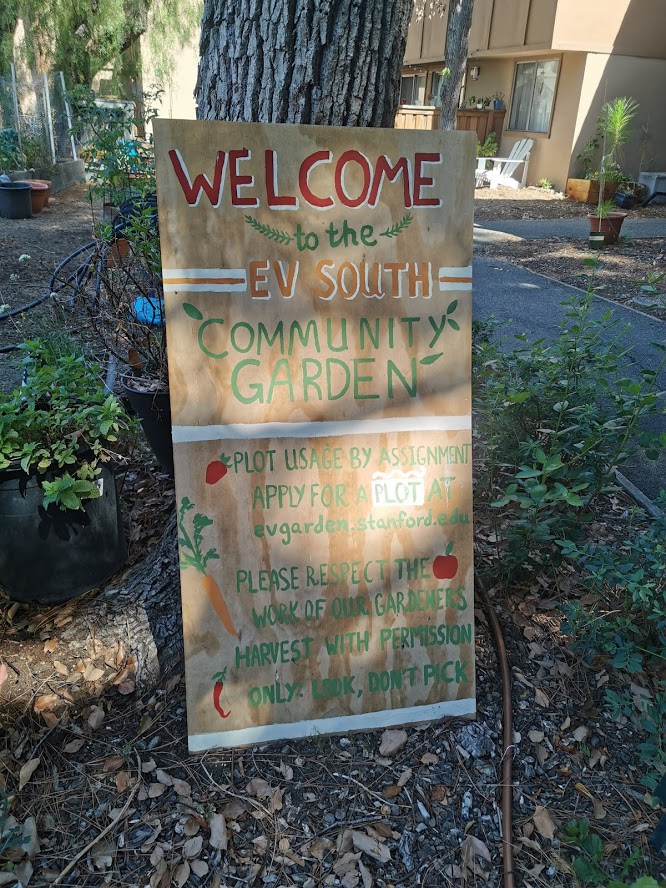 WELCOME
to the
EV SOUTH
COMMUNITY
GARDEN
PLOT USAGE BY ASSIGNMENT
APPLY FOR A PLOT AT
evgarden.stanford.edu
PLEASE RESPECT THE
WORK OF OUR GARDENERS
HARVEST WITH PERMISSION
ONLY. LOOK, DON'T PICK